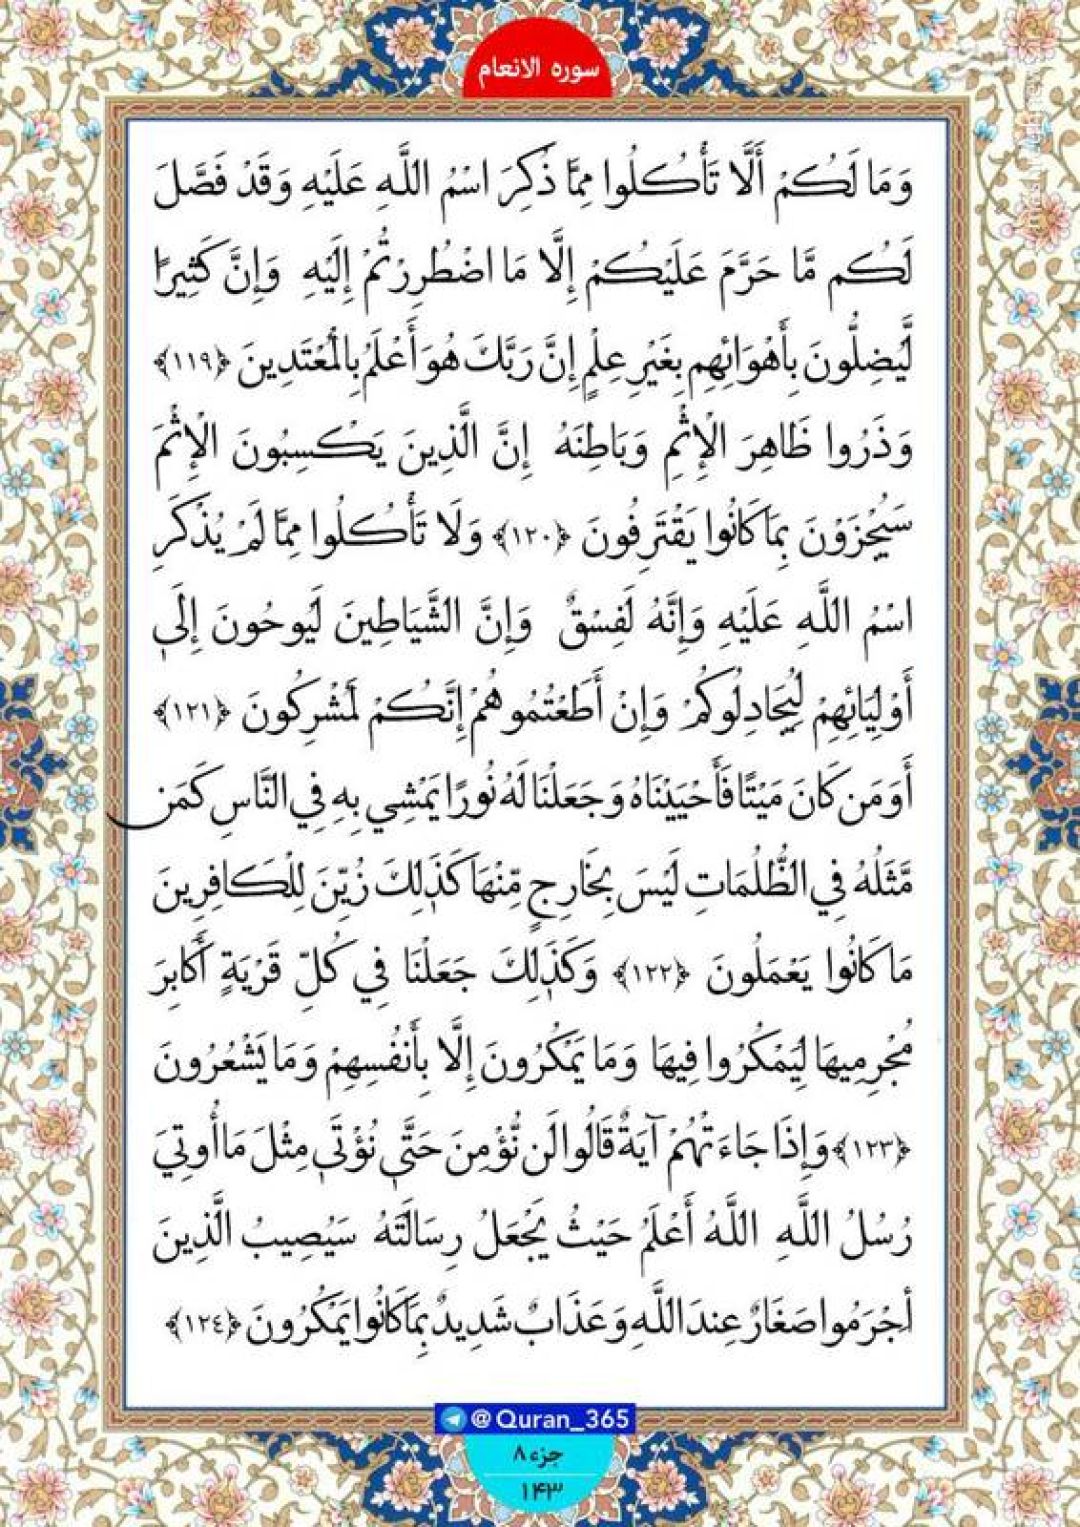 سوره الانعام
وَمَا لَكُمْ أَلَّا تَأْكُلُوا مِمَّا ذُكِرَ اسْمُ اللَّهِ عَلَيْهِ وَقَدْ فَصَّلَ
لَكُم مَّا حَرَّمَ عَلَيْكُمْ إِلَّا مَا اضْطُرِرْتُمْ إِلَيْهِ وَإِنَّ كَثِيرًا
لَّيُضِلُّونَ بِأَهْوَائِهِم بِغَيْرِ عِلْمٍ إِنَّ رَبَّكَ هُوَ أَعْلَمُ بِالْمُعْتَدِينَ ﴿١١٩﴾
وَذَرُوا ظَاهِرَ الْإِثْمِ وَبَاطِنَهُ إِنَّ الَّذِينَ يَكْسِبُونَ الْإِثْمَ
سَيُجْزَوْنَ بِمَا كَانُوا يَقْتَرِفُونَ ﴿١٢٠﴾ وَلَا تَأْكُلُوا مِمَّا لَمْ يُذْكَرِ
اسْمُ اللَّهِ عَلَيْهِ وَإِنَّهُ لَفِسْقٌ وَإِنَّ الشَّيَاطِينَ لَيُوحُونَ إِلَىٰ
أَوْلِيَائِهِمْ لِيُجَادِلُوكُمْ وَإِنْ أَطَعْتُمُوهُمْ إِنَّكُمْ لَمُشْرِكُونَ ﴿١٢١﴾
أَوَمَن كَانَ مَيْتًا فَأَحْيَيْنَاهُ وَجَعَلْنَا لَهُ نُورًا يَمْشِي بِهِ فِي النَّاسِ كَمَن
مَّثَلُهُ فِي الظُّلُمَاتِ لَيْسَ بِخَارِجٍ مِّنْهَا كَذَٰلِكَ زُيِّنَ لِلْكَافِرِينَ
مَا كَانُوا يَعْمَلُونَ ﴿١٢٢﴾ وَكَذَٰلِكَ جَعَلْنَا فِي كُلِّ قَرْيَةٍ أَكَابِرَ
مُجْرِمِيهَا لِيَمْكُرُوا فِيهَا وَمَا يَمْكُرُونَ إِلَّا بِأَنفُسِهِمْ وَمَا يَشْعُرُونَ
﴿١٢٣﴾ وَإِذَا جَاءَتْهُمْ آيَةٌ قَالُوا لَن نُّؤْمِنَ حَتَّىٰ نُؤْتَىٰ مِثْلَ مَا أُوتِيَ
رُسُلُ اللَّهِ اللَّهُ أَعْلَمُ حَيْثُ يَجْعَلُ رِسَالَتَهُ سَيُصِيبُ الَّذِينَ
أَجْرَمُوا صَغَارٌ عِندَ اللَّهِ وَعَذَابٌ شَدِيدٌ بِمَا كَانُوا يَمْكُرُونَ ﴿١٢٤﴾
@Quran_365
جزء ٨
۱۴۳